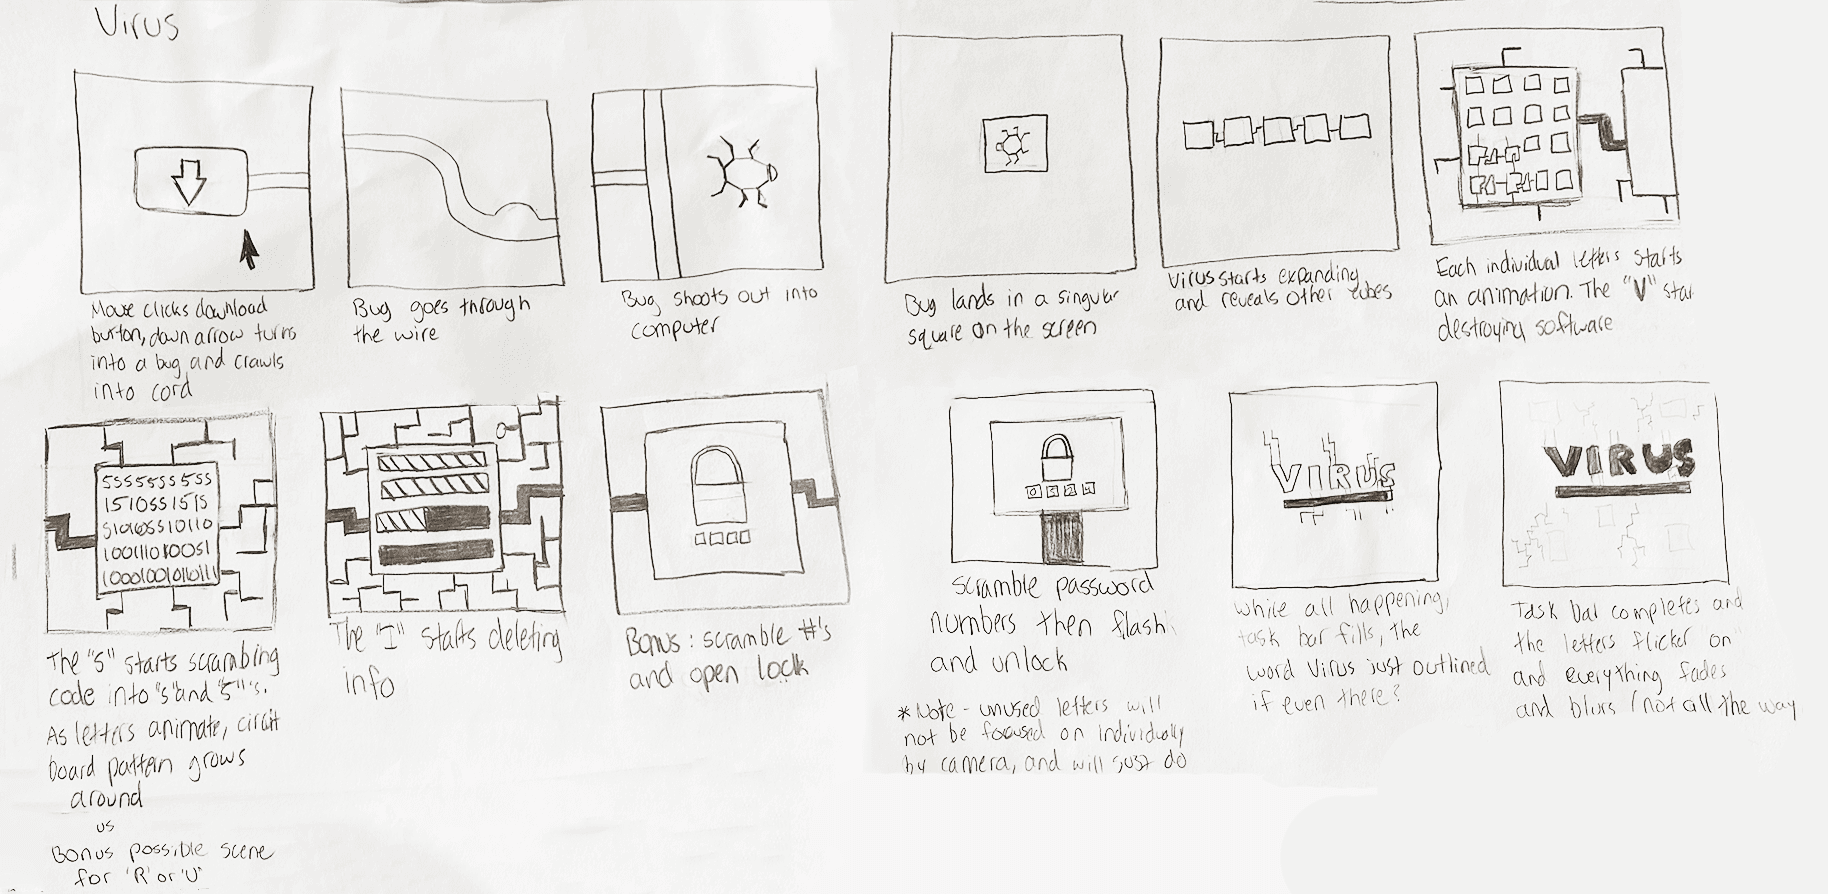 Virus
Mouse clicks download
button, down arrow turns
into a bug and crawls
into cord
Bug goes through
the wire
Bug shoots out into
computer
Bug lands in a singular
square on the screen
Virus starts expanding
and reveals other cubes
Each individual letters starts
an animation. The "V" star
destroying software
5SS5SSS5SS
The "S" starts scrambling
code into "s" and "5"'s.
As letters animate, circuit
board pattern grows
around
us
Bonus possible scene
for 'R' or 'U'
The "I" starts deleting
info
Bonus: scramble #'s
and open lock
scramble password
numbers then flash
and unlock
*Note - unused letters will
not be focused on individually
by camera, and will just do
VIRUS
while all happening,
task bar fills, the
word Virus just outlined
if even there?
VIRUS
Task bar completes and
the letters flicker on
and everything fades
and blurs (not all the way